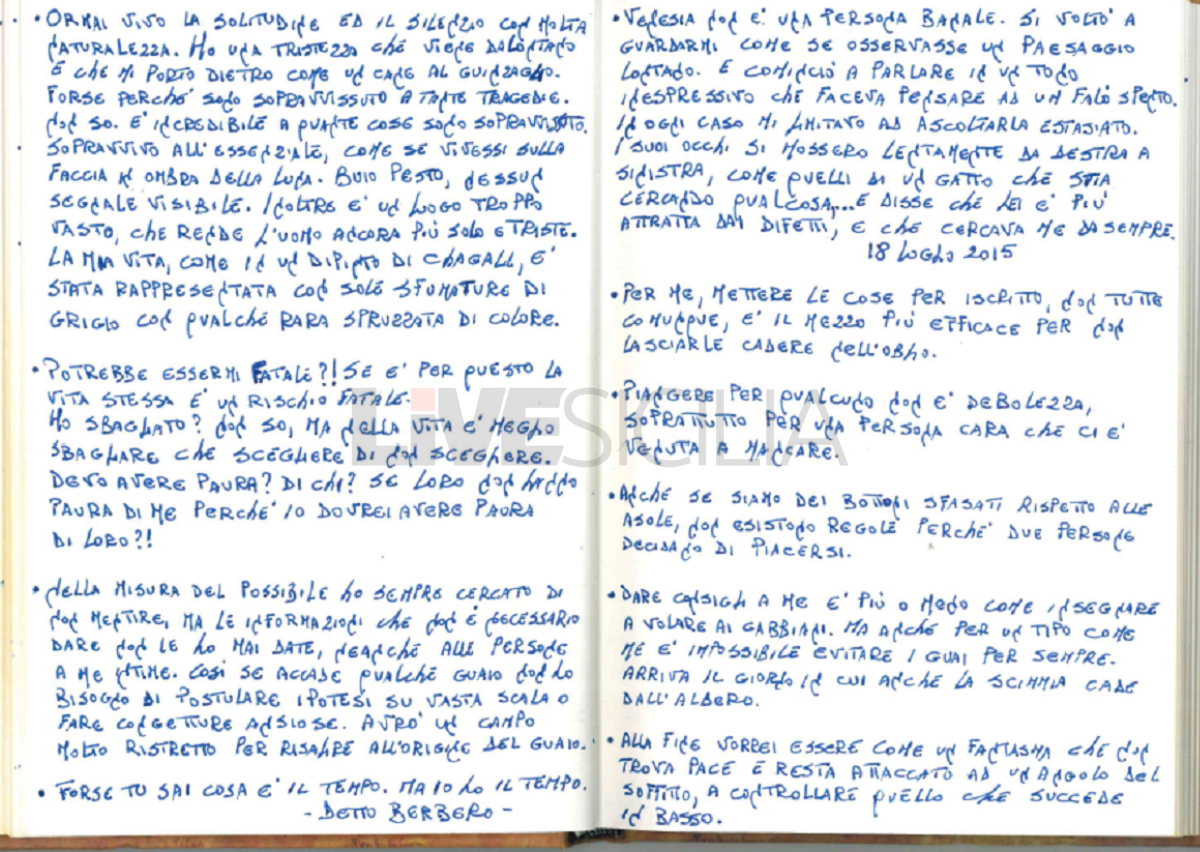 • ORMAI VIVO LA SOLITUDINE ED IL SILENZIO CON MOLTA
NATURALEZZA. HO UNA TRISTEZZA CHE VIENE DALONTANO
E CHE MI PORTO DIETRO COME UN CANE AL GUINZAGLIO.
FORSE PERCHÉ SONO SOPRAVVISSUTO A TANTE TRAGEDIE.
NON SO. E' INCREDIBILE A QUANTE COSE SONO SOPRAVVISSUTO.
SOPRAVVIVO ALL'ESSENZIALE, COME SE VIVESSI SULLA
FACCIA IN OMBRA DELLA LUNA. BUIO PESTO, NESSUN
SEGNALE VISIBILE. INOLTRE E' UN LUOGO TROPPO
VASTO, CHE RENDE L'UOMO ANCORA PIÙ SOLO E TRISTE.
LA MIA VITA, COME IN UN DIPINTO DI CHAGALL, E'
STATA RAPPRESENTATA CON SOLE SFUMATURE DI
GRIGIO CON QUALCHE RARA SPRUZZATA DI COLORE.
• POTREBBE ESSERMI FATALE?! SE E' PER QUESTO LA
VITA STESSA E' UN RISCHIO FATALE.
HO SBAGLIATO? NON SO, MA NELLA VITA E' MEGLIO
SBAGLIARE CHE SCEGLIERE DI NON SCEGLIERE.
DEVO AVERE PAURA? DI CHI? SE LORO NON HANNO
PAURA DI ME PERCHE' IO DOVREI AVERE PAURA
DI LORO?!
• NELLA MISURA DEL POSSIBILE HO SEMPRE CERCATO DI
NON MENTIRE, MA LE INFORMAZIONI CHE NON É NECESSARIO
DARE NON LE HO MAI DATE, NEANCHÉ ALLE PERSONE
A ME INTIME. COSÌ SE ACCADE QUALCHE GUAIO NON HO
BISOGNO DI POSTULARE IPOTESI SU VASTA SCALA O
FARE CONGETTURE ANSIOSE. AVRO' UN CAMPO
MOLTO RISTRETTO PER RISALIRE ALL'ORIGINE DEL GUAIO.
• FORSE TU SAI COSA E' IL TEMPO. MA IO HO IL TEMPO.
- DETTO BERBERO -
• VENESIA NON E' UNA PERSONA BANALE. SI VOLTO' A
GUARDARMI COME SE OSSERVASSE UN PAESAGGIO
LONTANO. E COMINCIÒ A PARLARE IN UN TONO
INESPRESSIVO CHE FACEVA PENSARE AD UN FALÒ SPENTO.
IN OGNI CASO MI LIMITAVO AD ASCOLTARLA ESTASIATO.
I SUOI OCCHI SI MOSSERO LENTAMENTE DA DESTRA A
SINISTRA, COME QUELLI DI UN GATTO CHE STIA
CERCANDO QUALCOSA,... E DISSE CHE LEI E' PIÙ
ATTRATTA DAI DIFETTI, E CHE CERCAVA ME DA SEMPRE.
18 LUGLIO 2015
• PER ME, METTERE LE COSE PER ISCRITTO, NON TUTTE
COMUNQUE, E' IL MEZZO PIÙ EFFICACE PER NON
LASCIARLE CADERE NELL'OBLIO.
• PIANGERE PER QUALCUNO NON E' DEBOLEZZA,
SOPRATTUTTO PER UNA PERSONA CARA CHE CI E'
VENUTA A MANCARE.
• ANCHE SE SIAMO DEI BOTTONI SFASATI RISPETTO ALLE
ASOLE, NON ESISTONO REGOLE PERCHE' DUE PERSONE
DECIDANO DI PIACERSI.
• DARE CONSIGLI A ME E' PIÙ O MENO COME INSEGNARE
A VOLARE AI GABBIANI. MA ANCHE PER UN TIPO COME
ME E' IMPOSSIBILE EVITARE I GUAI PER SEMPRE.
ARRIVA IL GIORNO IN CUI ANCHE LA SCIMMIA CADE
DALL'ALBERO.
• ALLA FINE VORREI ESSERE COME UN FANTASMA CHE NON
TROVA PACE E RESTA ATTACCATO AD UN ANGOLO DEL
SOFFITTO, A CONTROLLARE QUELLO CHE SUCCEDE
IN BASSO.
LIVESICILIA